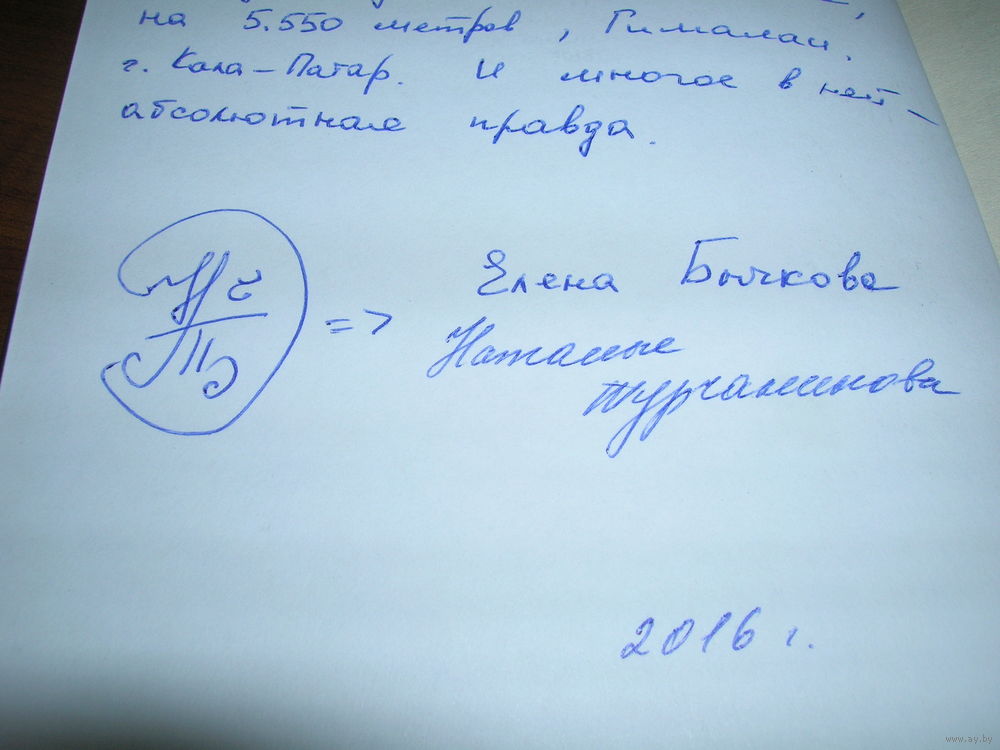 на 5.550 метров, Гималаи,
г. Кала-Патар. И многое в ней -
абсолютная правда.
=> Елена Бычкова
Наталья
Турчанинова
2016 г.
www.ay.by